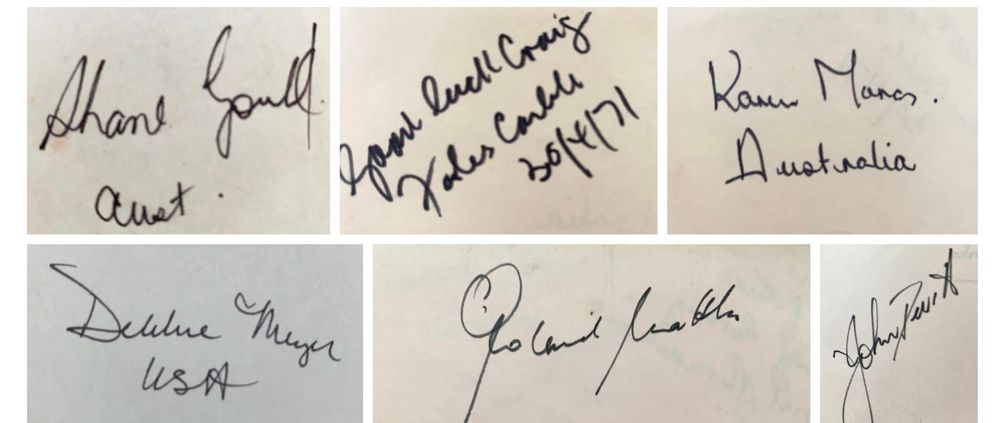 Shane Gould.
Aust.
Good luck Craig
Forbes Carlile
30/4/71
Karen Moras.
Australia
Debbie Meyer
USA
Roland Matthes
John Devitt